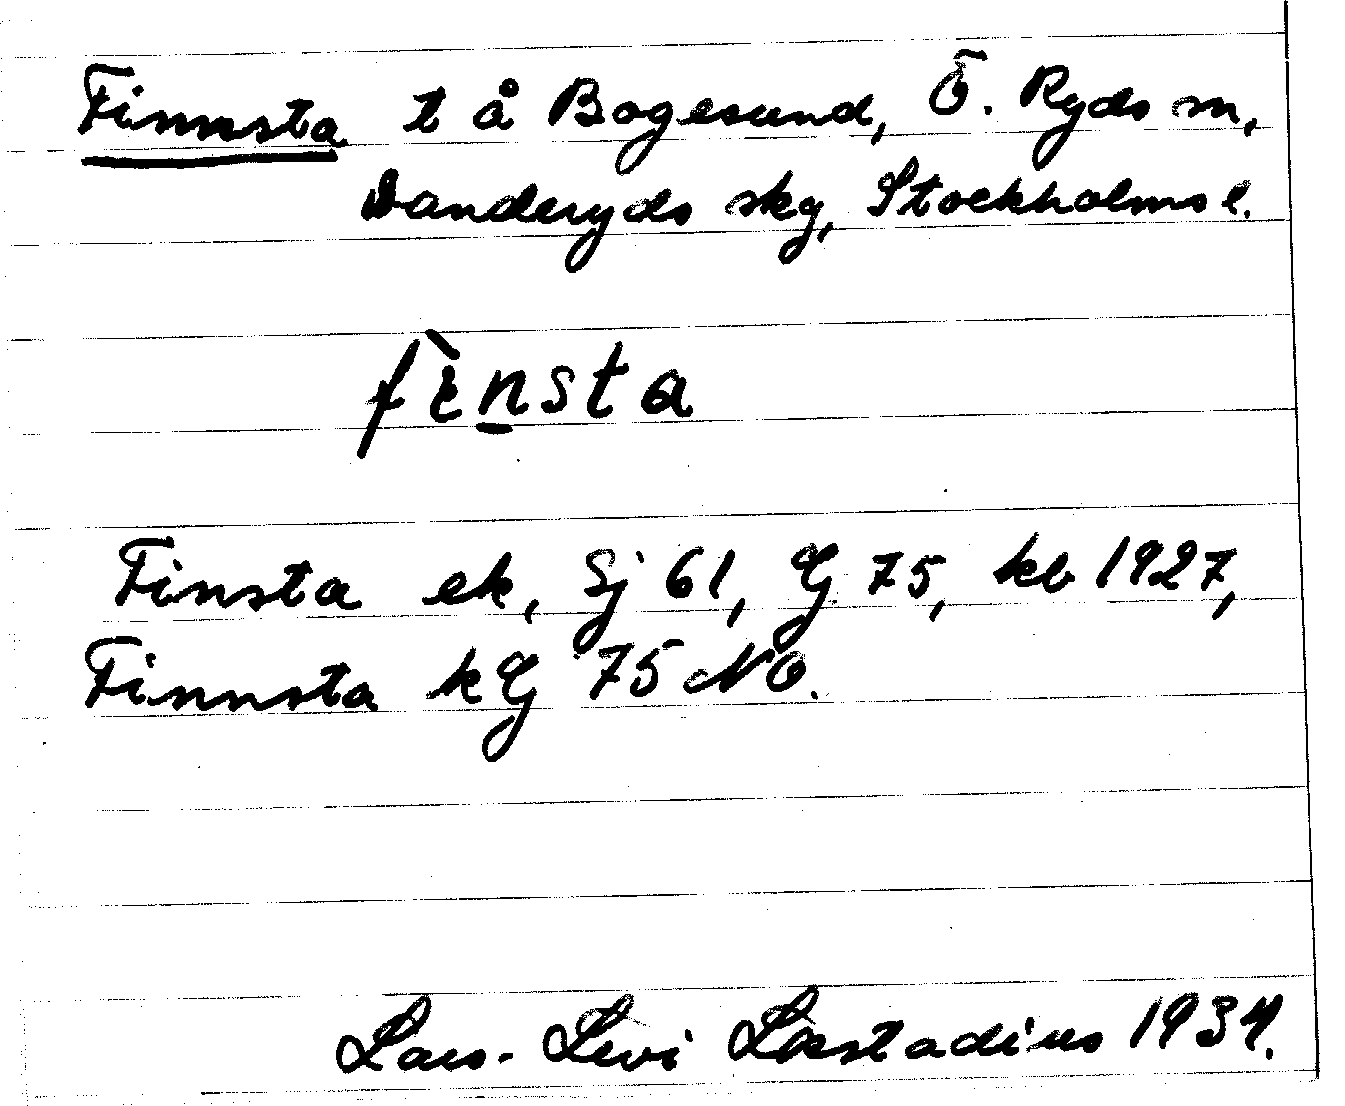 Finnsta t å Bogesund, Ö. Ryds sn,
Danderyds skg, Stockholms l.
fìnsta
Finsta ek, Sj 61, G 75, kb 1927,
Finnsta kG 75 NO.
Lars-Levi Læstadius 1934.